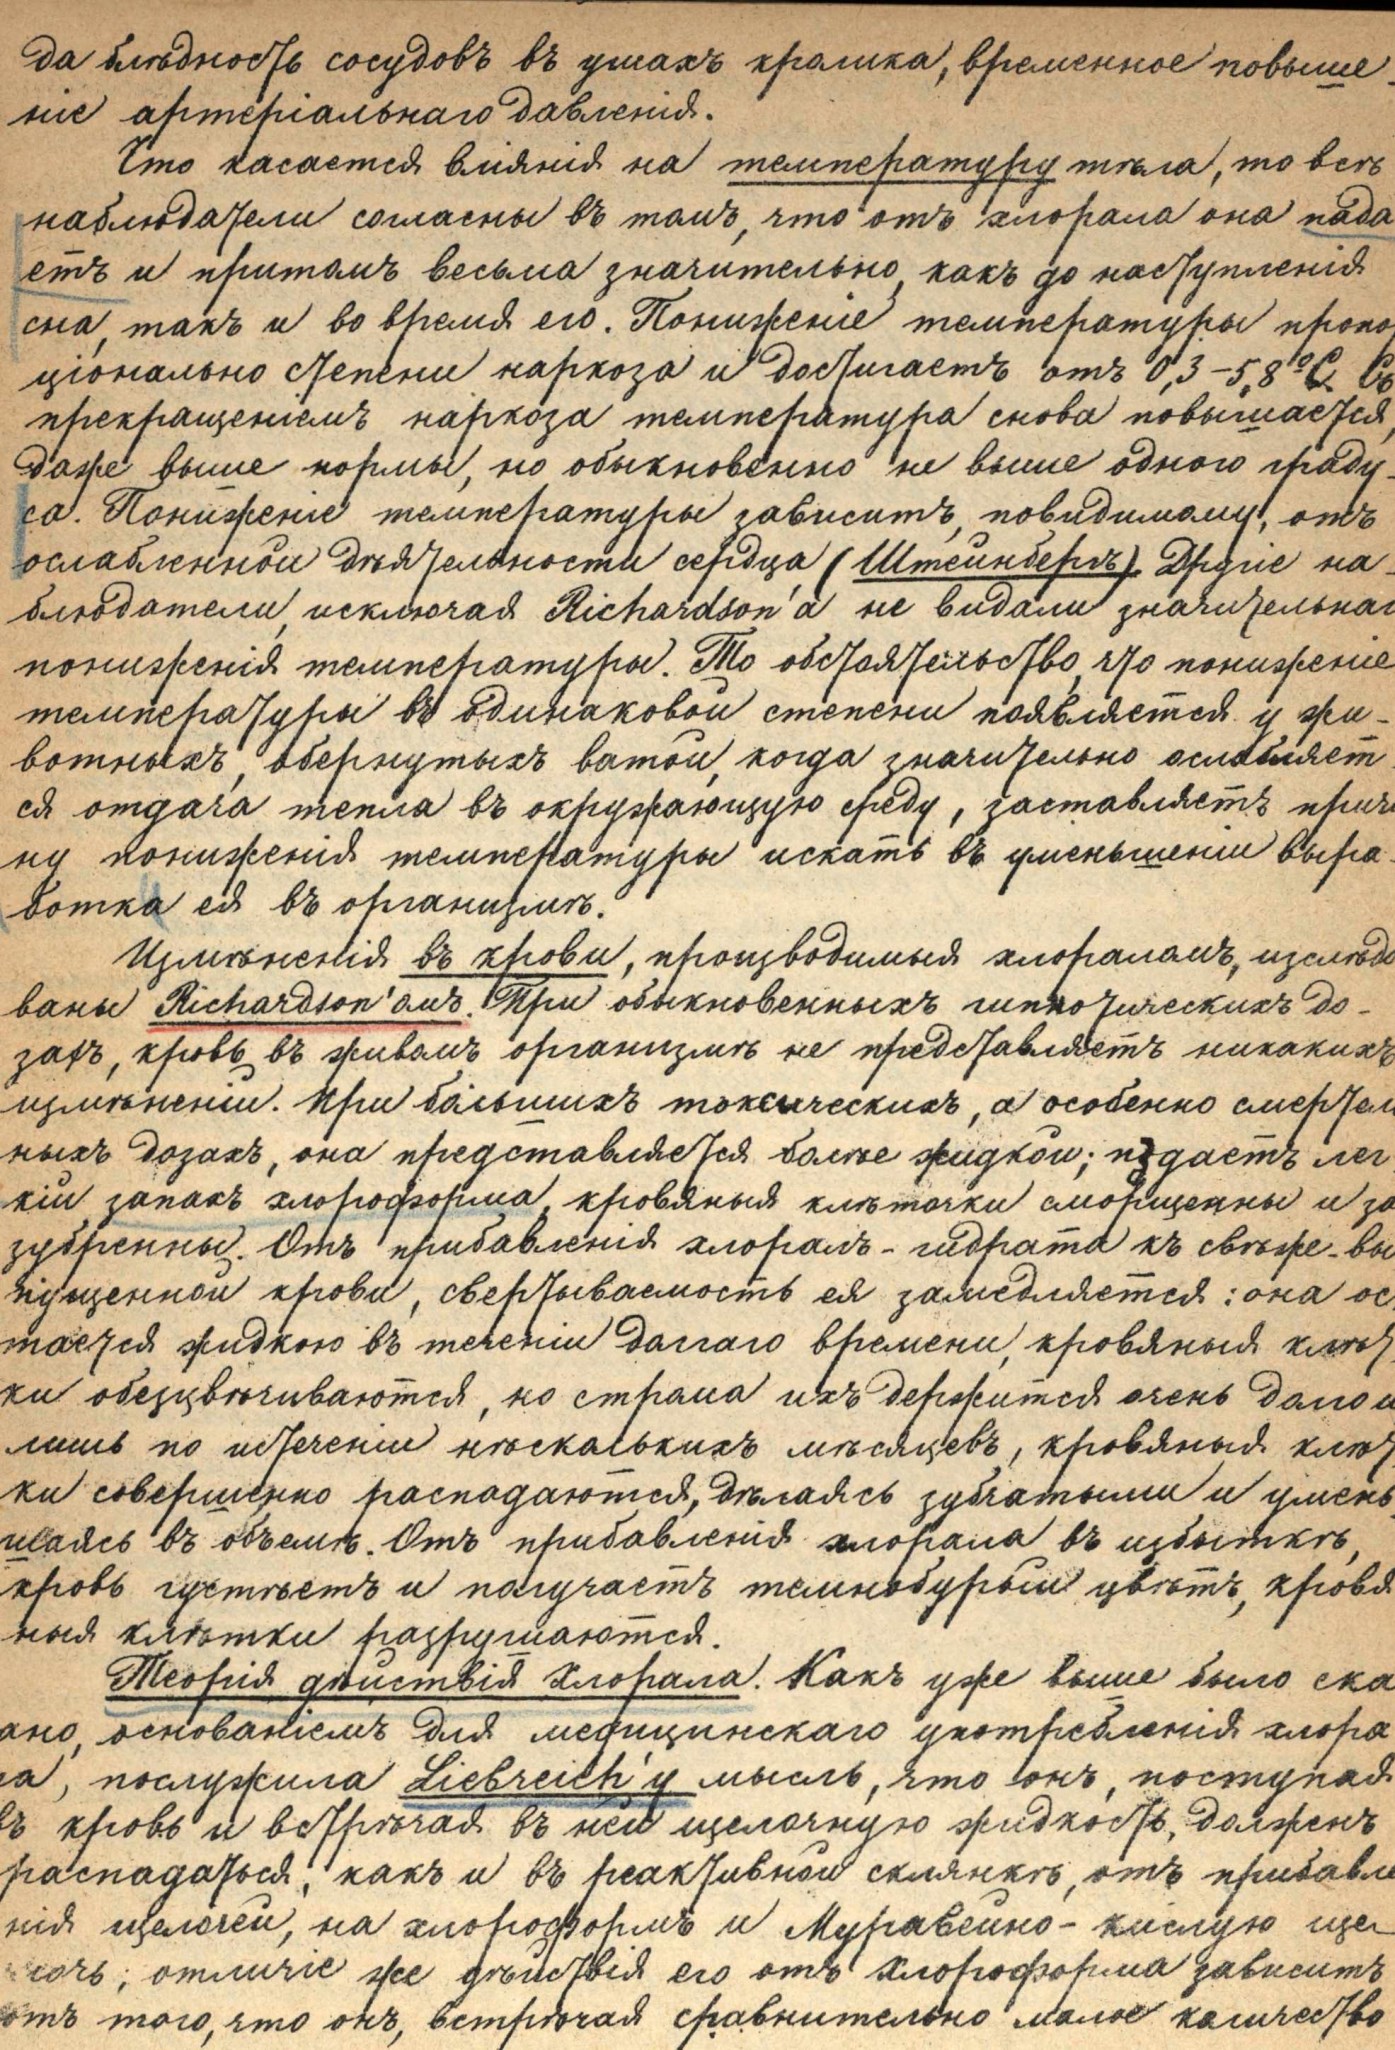 да блѣдность сосудовъ въ ушахъ кролика, временное повыше-
ніе артеріальнаго давленія.
Что касается вліянія на температуру тѣла, то всѣ
наблюдатели согласны въ томъ, что отъ хлорала она пада
етъ и притомъ весьма значительно, какъ до наступленія
сна, такъ и во время его. Пониженіе температуры пропо
ціонально степени наркоза и достигаетъ отъ 0,3-5,8°C. Съ
прекращеніемъ наркоза температура снова повышается,
даже выше нормы, но обыкновенно не выше одного граду-
са. Пониженіе температуры зависитъ, повидимому, отъ
ослабленной дѣятельности сердца (Штейнбергъ). Другіе на-
блюдатели, исключая Richardson'а не видали значительнаг
пониженія температуры. То обстоятельство, что пониженіе
температуры въ одинаковой степени появляется у жи-
вотныхъ, обернутыхъ ватой, когда значительно ослабляет
ся отдача тепла въ окружающую среду, заставляетъ прич
ну пониженія температуры искать въ уменьшеніи выра-
ботка ея въ организмѣ.
Измѣненія въ крови, производимыя хлораломъ, изслѣдо
ваны Richardson'омъ. При обыкновенныхъ гипнотическихъ до-
захъ, кровь въ живомъ организмѣ не представляетъ никакихъ
измѣненій. При большихъ токсическихъ, а особенно смертел
ныхъ дозахъ, она представляется болѣе жидкой; издаетъ лег
кій запахъ хлороформа, кровяныя клѣточки сморщенны и за
зубренны. Отъ прибавленія хлоралъ-гидрата къ свѣже-вы
пущенной крови, свертываемость ея замедляется: она ос
тается жидкою въ теченіи долгаго времени, кровяныя клѣт
ки обезцвѣчиваются, но строма ихъ держится очень долго и
лишь по истеченіи нѣсколькихъ мѣсяцевъ, кровяныя клѣт
ки совершенно распадаются, дѣлаясь зубчатыми и умень
шаясь въ объемѣ. Отъ прибавленія хлорала въ избыткѣ,
кровь густѣетъ и получаетъ темнобурый цвѣтъ, кровя
ныя клѣтки разрушаются.
Теорія дѣйствія хлорала. Какъ уже выше было ска
ано, основаніемъ для медицинскаго употребленія хлора
ла, послужила Liebreich'у мысль, что онъ, поступая
въ кровь и встрѣчая въ ней щелочную жидкость, долженъ
распадаться, какъ и въ реактивной склянкѣ, отъ прибавле
нія щелочей, на хлороформъ и Муравейно-кислую ще-
лочь; отличіе же дѣйствія его отъ хлороформа зависитъ
отъ того, что онъ, встрѣчая сравнительно малое количество